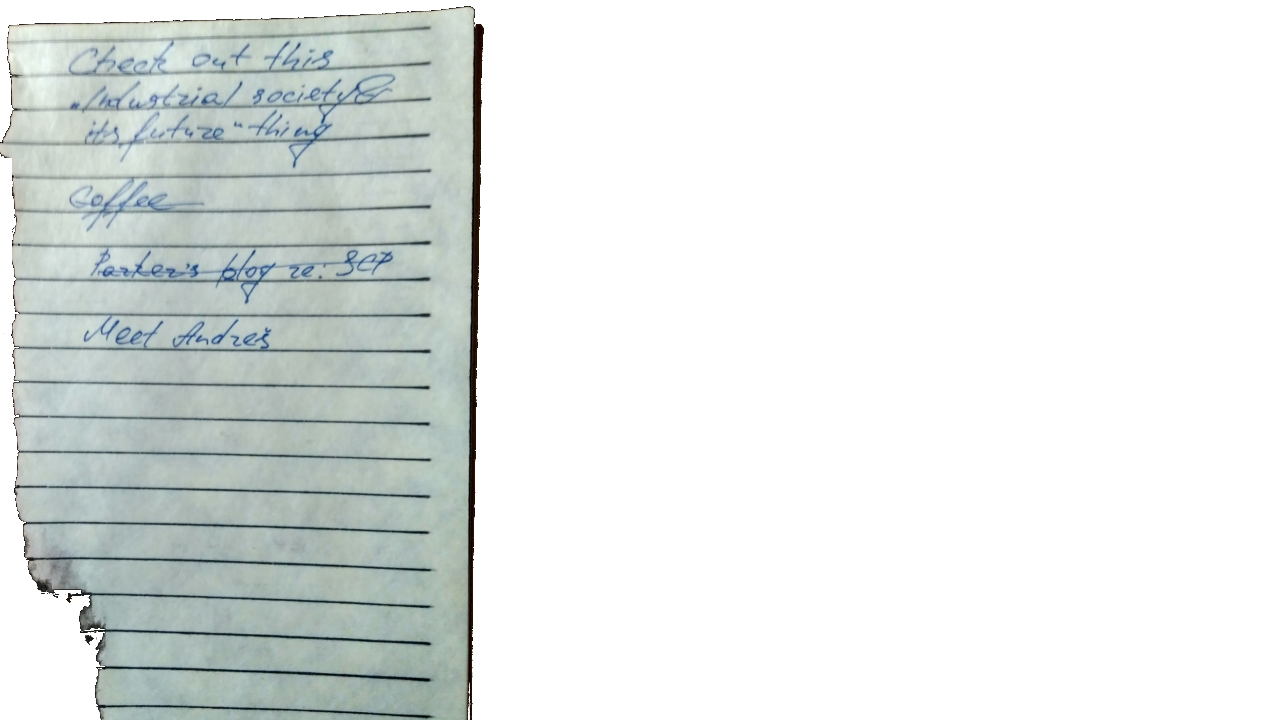 Check out this
„Industrial society &
its future“ thing
Coffee
Parker's blog re: SCP
Meet Andreš